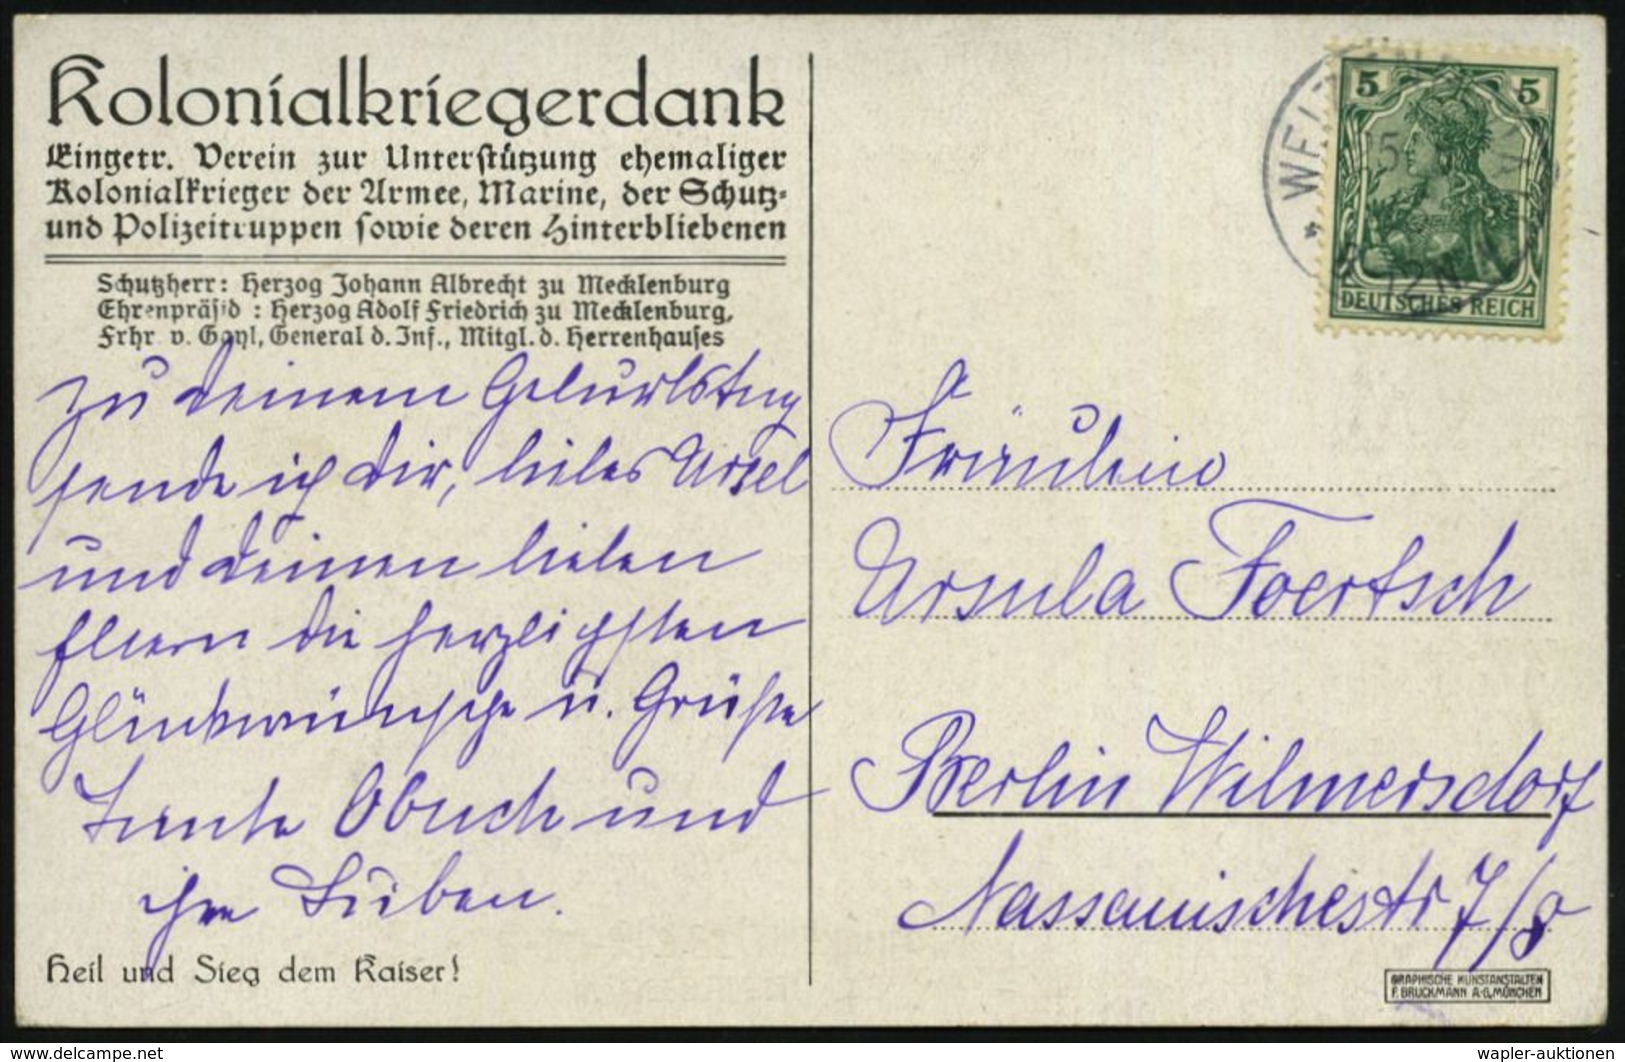 Kolonialkriegerdank
Eingetr. Verein zur Unterstützung ehemaliger
Kolonialkrieger der Armee, Marine, der Schutz-
und Polizeitruppen sowie deren Hinterbliebenen
Schutzherr: Herzog Johann Albrecht zu Mecklenburg
Ehrenpräsid: Herzog Adolf Friedrich zu Mecklenburg,
Frhr. v. Gayl, General d. Inf., Mitgl. d. Herrenhauses
Zu deinem Geburtstag
sende ich dir, liebes Ursel
und deinen lieben
Eltern die herzlichsten
Glückwünsche u. Grüße
Tante Obuch und
ihre
Heil und Sieg dem Kaiser!
5 5
DEUTSCHES REICH
12 N
Fräulein
Ursula Foertsch
Berlin Wilmersdorf
Nassauischestr 7/8
GRAPHISCHE KUNSTANSTALTEN
F. BRUCKMANN A-G, MÜNCHEN
https://www.delcampe.net
wapler-auktionen